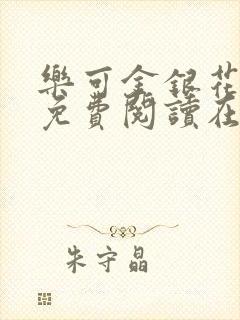 樂可金銀花
免費閱讀在
朱守晶